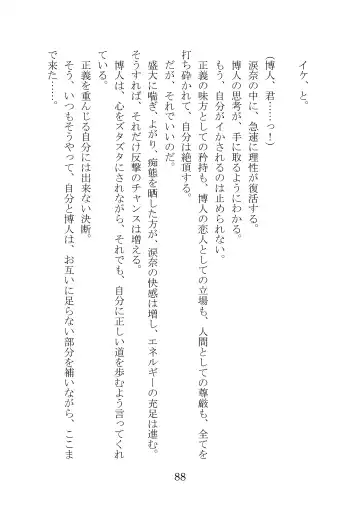 イケ、と。
(博人、君……っ！)
涙奈の中に、急速に理性が復活する。
博人の思考が、手に取るようにわかる。
もう、自分がイかされるのは止められない。
正義の味方としての矜持も、博人の恋人としての立場も、人間としての尊厳も、全てを
打ち砕かれて、自分は絶頂する。
だが、それでいいのだ。
盛大に喘ぎ、よがり、痴態を晒した方が、涙奈の快感は増し、エネルギーの充足は進む。
そうすれば、それだけ反撃のチャンスは増える。
博人は、心をズタズタにされながら、それでも、自分に正しい道を歩むよう言ってくれ
ている。
正義を重んじる自分には出来ない決断。
そう、いつもそうやって、自分と博人は、お互いに足らない部分を補いながら、ここま
で来た……。
88